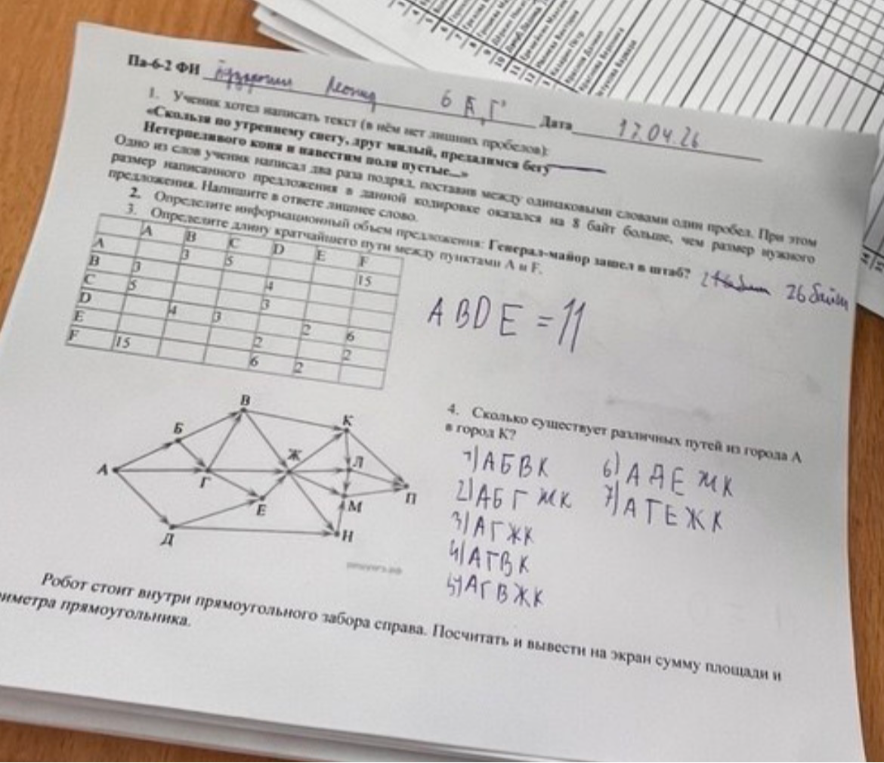 Па-6-2 ФИ Леонид 6 А,Г Дата 17.04.26
1. Ученик хотел написать текст (в нём нет лишних пробелов):
«Скользя по утреннему снегу, друг милый, предадимся бегу
Нетерпеливого коня и навестим поля пустые...»
Одно из слов ученик написал два раза подряд, поставив между одинаковыми словами один пробел. При этом
размер написанного предложения в данной кодировке оказался на 8 байт больше, чем размер нужного
предложения. Напишите в ответе лишнее слово.
2. Определите информационный объем предложения: Генерал-майор зашел в штаб? 26 байт
3. Определите длину кратчайшего пути между пунктами A и F.
A B C D E F
A 3 5 15
B 3 4
C 5 3
D 4 3 2 6
E 2 2
F 15 6 2
ABDE = 11
4. Сколько существует различных путей из города А
в город К?
1) АБВК
2) АБГЖК
3) АГЖК
4) АГВК
5) АГВЖК
6) АДЕЖК
7) АГЕЖК
В
К
Б
Ж
Л
А
Г
П
Е
М
Д
Н
Робот стоит внутри прямоугольного забора справа. Посчитать и вывести на экран сумму площади и
риметра прямоугольника.